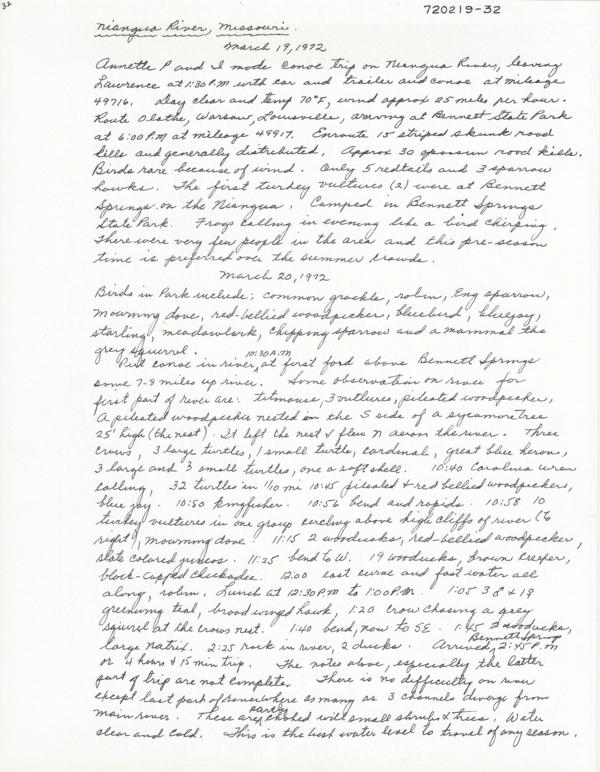 32
720219-32
Niangua River, Missouri.
March 19, 1972
Annette P and I made canoe trip on Niangua River, leaving
Lawrence at 1:30 P.M with car and trailer and canoe at mileage
49716. Day clear and temp 70°F, wind approx 25 miles per hour.
Route Olathe, Warsaw, Louisville, arriving at Bennett State Park
at 6:00 P.M at mileage 49917. Enroute 15 striped skunk road
kills and generally distributed. Approx 30 opossum road kills.
Birds rare because of wind. Only 5 redtails and 3 sparrow
hawks. The first turkey vultures (2) were at Bennett
Springs on the Niangua. Camped in Bennett Springs
State Park. Frogs calling in evening like a bird chirping.
There were very few people in the area and this pre-season
time is preferred over the summer crowds.
March 20, 1972
Birds in Park include: common grackle, robin, Eng sparrow,
mourning dove, red-bellied woodpecker, bluebird, bluejay,
starling, meadowlark, chipping sparrow and a mammal the
grey squirrel.
Put canoe in river, 10:30 A.M at first ford above Bennett Springs
some 7-8 miles up river. Some observation on river for
first part of river are: titmouse, 3 vultures, pileated woodpecker,
A pileated woodpecker nested in the S side of a sycamore tree
25' high (the nest). It left the nest & flew N across the river. Three
crows, 3 large turtles, 1 small turtle, cardinal, great blue heron,
3 large and 3 small turtles, one a soft shell. 10:40 Carolina wren
calling, 32 turtles in 1/10 mi 10:45 pileated & red bellied woodpeckers,
blue jay. 10:50 kingfisher. 10:56 bend and rapids. 10:58 10
turkey vultures in one group perching above high cliffs of river (to
right), mourning dove. 11:15 2 wooducks, red-bellied woodpecker,
slate colored juncos. 11:25 bend to W. 19 wooducks, brown creeper,
black-capped chickadee. 12:00 east curve and fast water all
along, robin. Lunch at 12:30 P.M to 1:00 P.M. 1:05 3♂ & 1♀
greenwing teal, broad winged hawk, 1:20 crow chasing a grey
squirrel at the crows nest. 1:40 bend, now to SE. 1:45 2 wooducks,
large Natrix. 2:25 rock in river, 2 ducks. Arrived Bennett Springs 2:45 P.M
or 4 hours & 15 min trip. The notes above, especially the latter
part of trip are not complete. There is no difficulty on river
except last part of river where as many as 3 channels diverge from
main river. These are partly choked with small shrubs & trees. Water
clear and cold. This is the best water level to travel of any season.